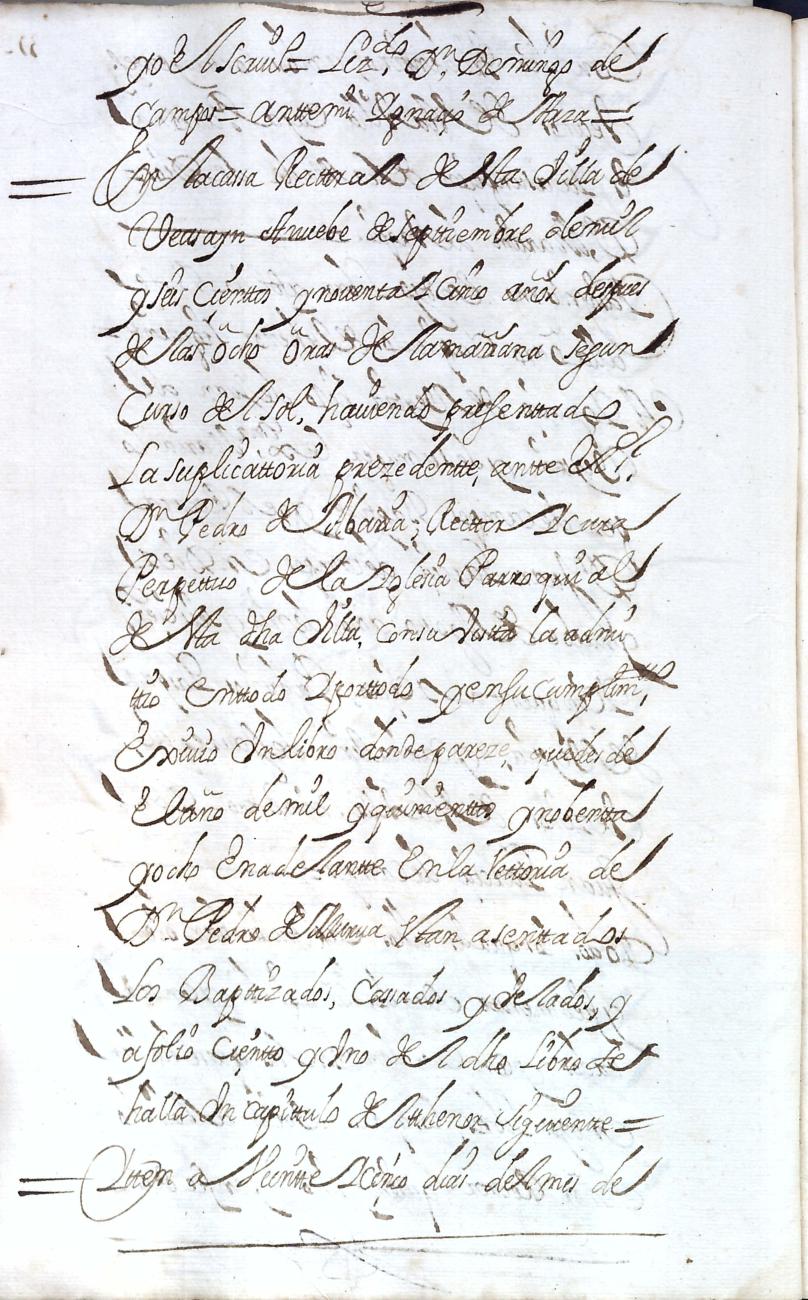 yo El scriuº= Lizdo. Dn. Domingo de
Campos= anttemi Ygnacio de Ytaza=
En lacassa Recttoral de Vsta Villa de
Veasayn Anuebe de septtiembre de mil
y seis Cientos y nouenta Y Cinco años despues
de las ôcho ôras de la mañana segun
Curso del sol, hauiendo presenttado
La suplicattoria prezedentte, antte el
Dn Pedro de Rector Y Cura
Perpettuo de la Yglesia Parroquial
de Vsta dha Villa, Consu Vista la admi
ttio Enttodo Yporttodo y ensu Cumplimtto,
Exiuio Vn libro donde pareze, quedesde
El año de mil y quinienttos y nobentta
y ocho En adelantte En la Rettoria de
Dn Pedro de Vstan asenttados
Los Bapttizados, Cassados y Velados, y
a folio Cientto y Vno del dho Libro se
halla Vn Capittulo del thenor siguiente=
Yttem a Veintte Y Cinco dias del mes de